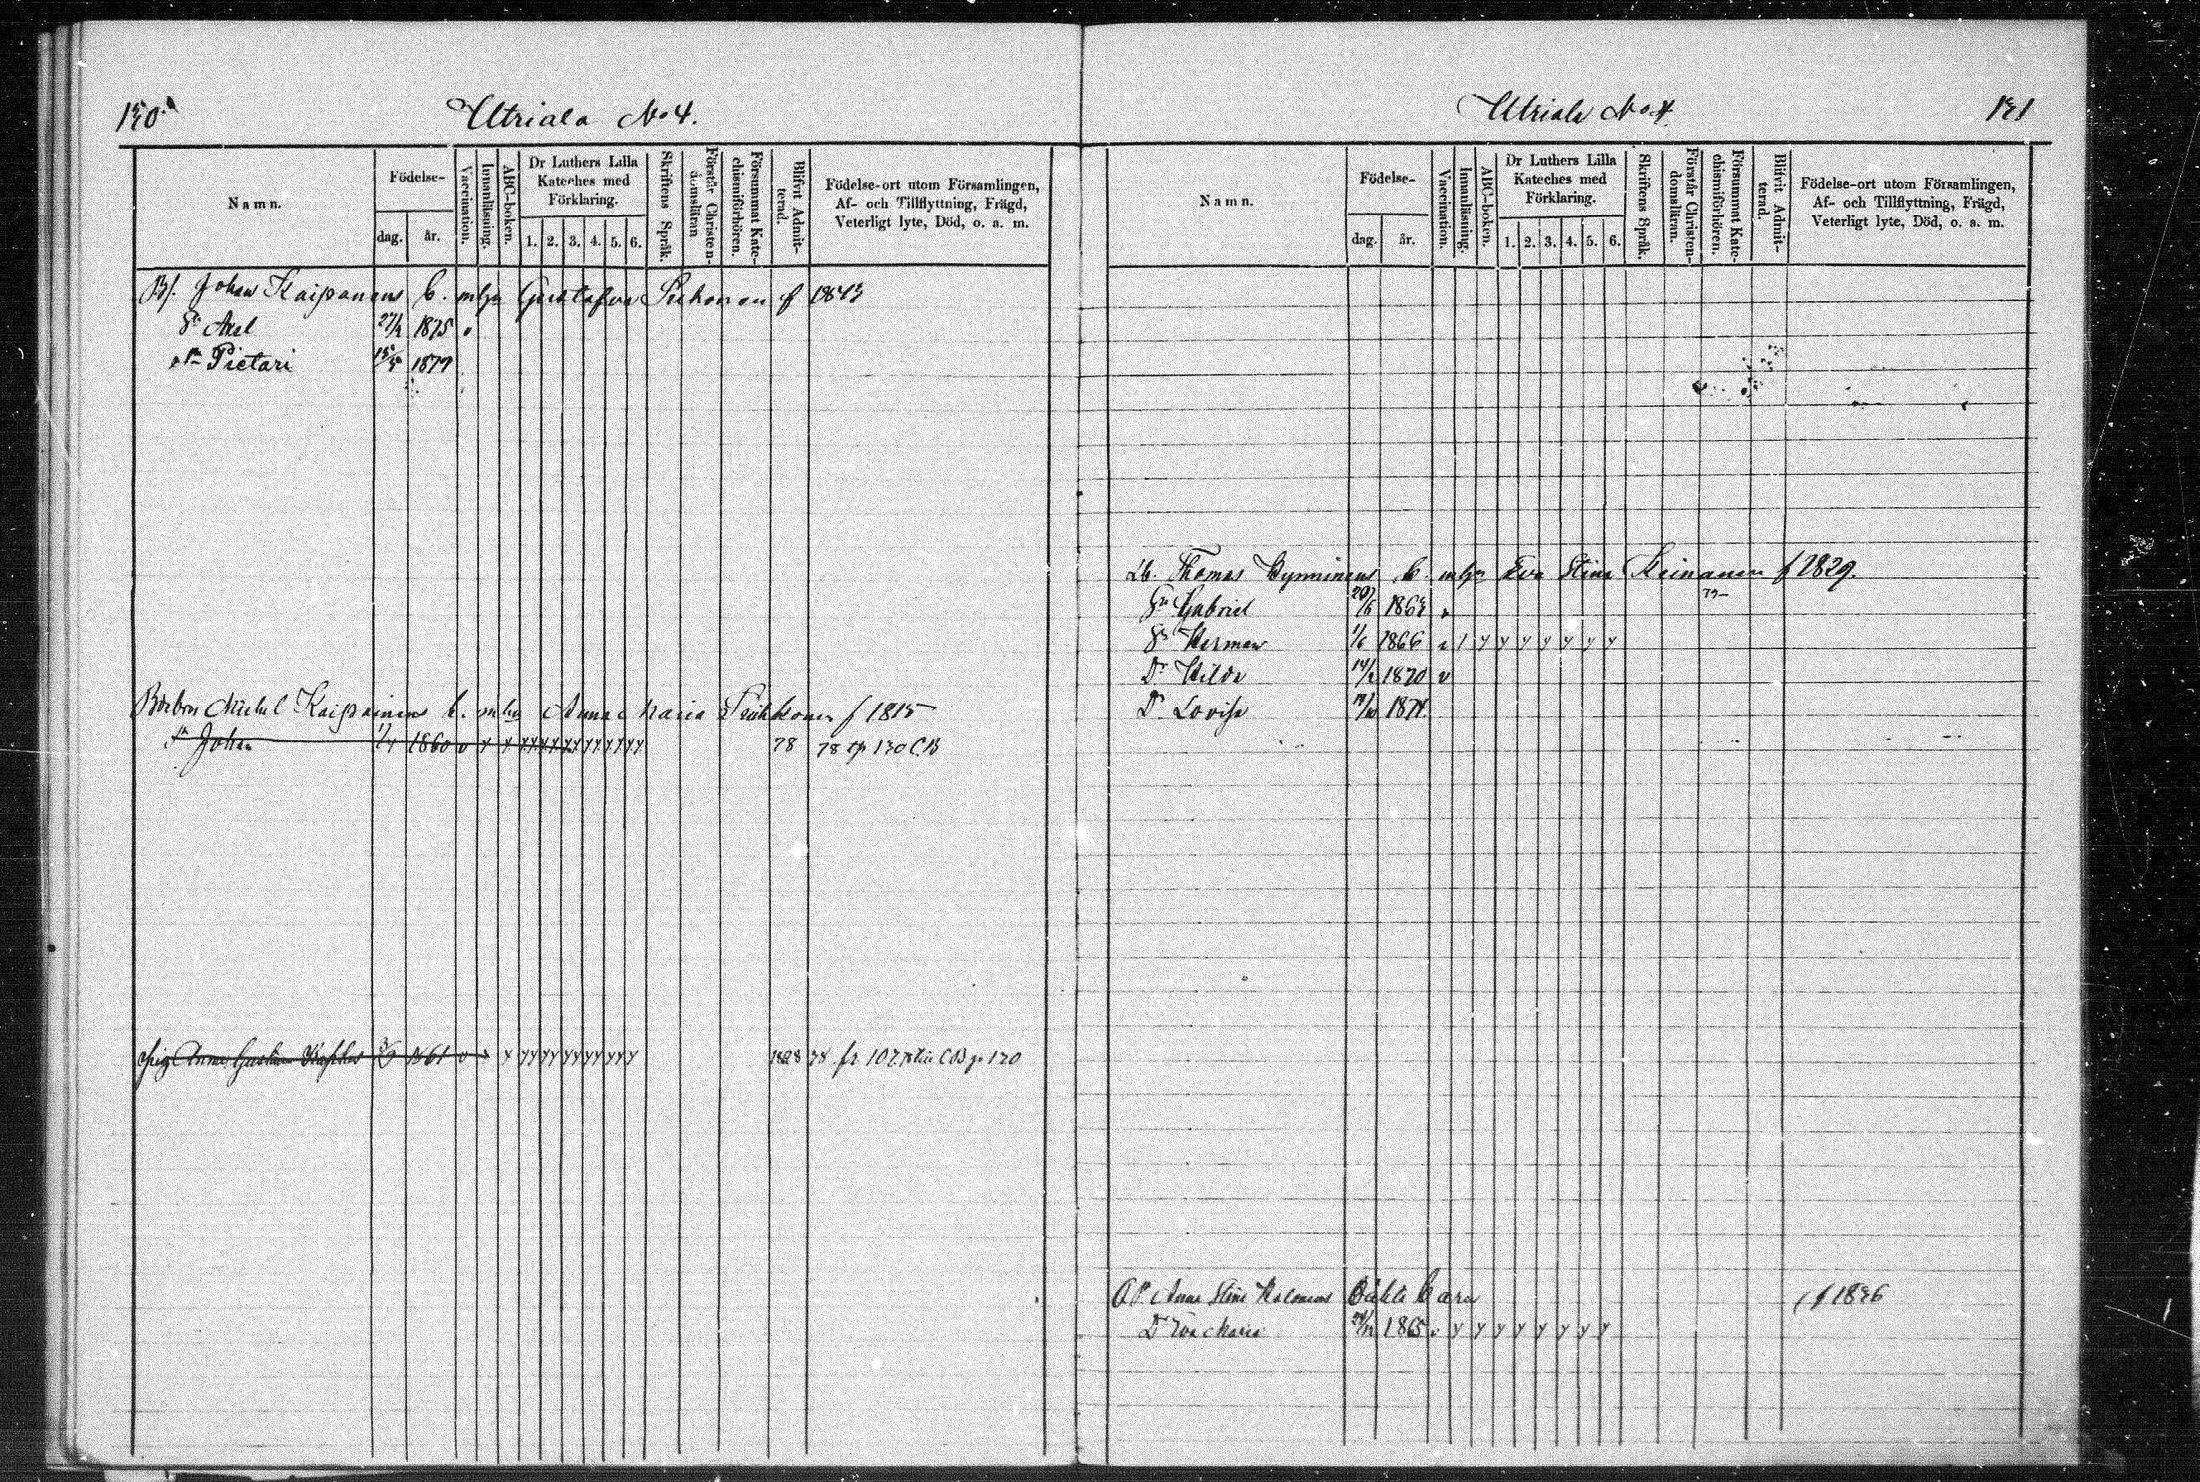 150
Utriala No 4.
Namn.
Födelse-
dag.
år.
Vaccination.
Innanläsning.
ABC-boken.
Dr Luthers Lilla
Kateches med
Förklaring.
1. 2. 3. 4. 5. 6.
Skriftens Språk.
Förstår Christen-
domsläran
Försummat Kate-
chismiförhören.
Blifvit Admit-
terad.
Födelse-ort utom Församlingen,
Af- och Tillflyttning, Frägd,
Veterligt lyte, Död, o. a. m.
Johan Kaipanens b. m hu Gustafva f 1843
Sn Axel 1875 v
Sn Pietari 15/5 1877
Michel Kaipainens b. m hu Anna Maria f 1815
Sn Johan 1860 v y y y y y y y y y y y y y 78 78 sp 170 CB
Pig Anna 1861 v y y y y y y y y y y y 78 fr 107
Utriala No 4.
151
Namn.
Födelse-
dag.
år.
Vaccination.
Innanläsning.
ABC-boken.
Dr Luthers Lilla
Kateches med
Förklaring.
1. 2. 3. 4. 5. 6.
Skriftens Språk.
Förstår Christen-
domsläran.
Försummat Kate-
chismiförhören.
Blifvit Admit-
terad.
Födelse-ort utom Församlingen,
Af- och Tillflyttning, Frägd,
Veterligt lyte, Död, o. a. m.
Thomas b. m hu Eva Stina Keinanen f 1829.
Sn Gabriel 20/6 1863 v
Sn Herman 1/6 1866 v y y y y y y y
Dr Hilda 1870 v
Dr Lovisa 1874
Anna Stina barn f 1836
Dr Eva Maria 1865 v y y y y y y y y